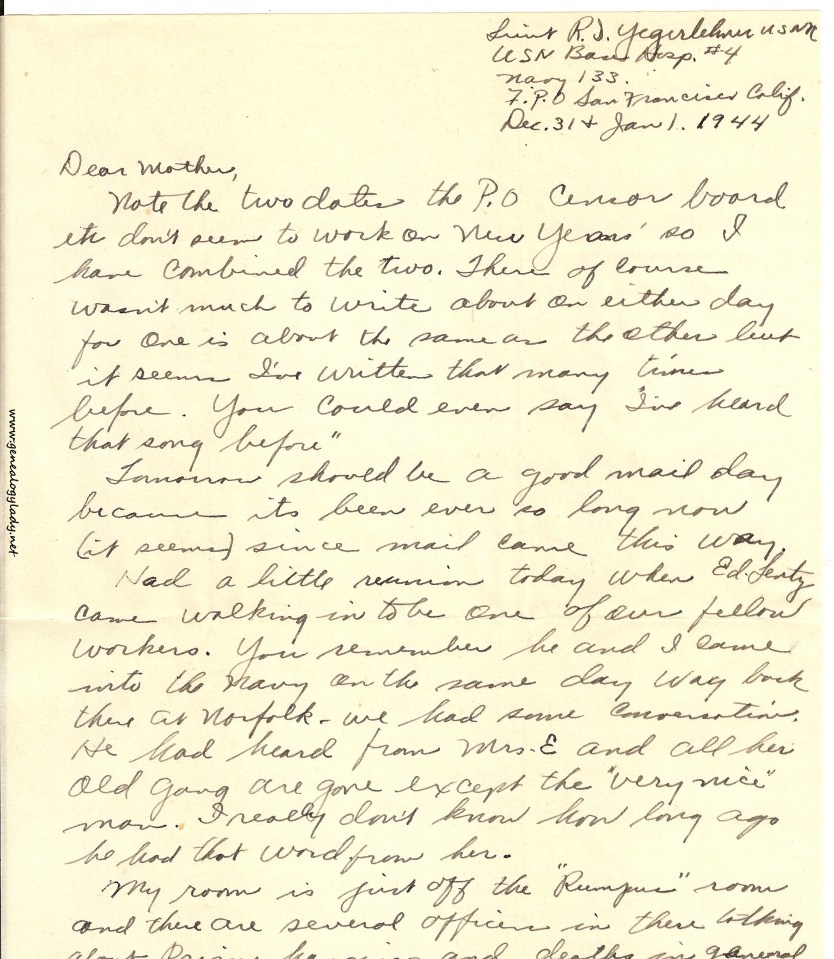 Lieut R.D. Yegerlehner USNR
USN Base Hosp. #4
Navy 133.
F.P.O San Francisco Calif.
Dec. 31 + Jan 1. 1944
Dear Mother,
Note the two dates the P.O Censor board
etc don't seem to work on New Years' so I
have combined the two. There of course
wasn't much to write about on either day
for one is about the same as the other but
it seems I've written that many times
before. You could even say "I've heard
that song before"
Tomorrow should be a good mail day
because its been ever so long now
(it seems) since mail came this way.
Had a little reunion today when Ed. Lentz
came walking in to be one of our fellow
workers. You remember he and I came
into the Navy on the same day way back
there at Norfolk - we had some conversation.
He had heard from Mrs. E and all her
old gang are gone except the "very nice"
man. I really don't know how long ago
he had that word from her.
My room is just off the "Rumpus" room
and there are several officers in there talking
about hanging and deaths in general
www.genealogylady.net